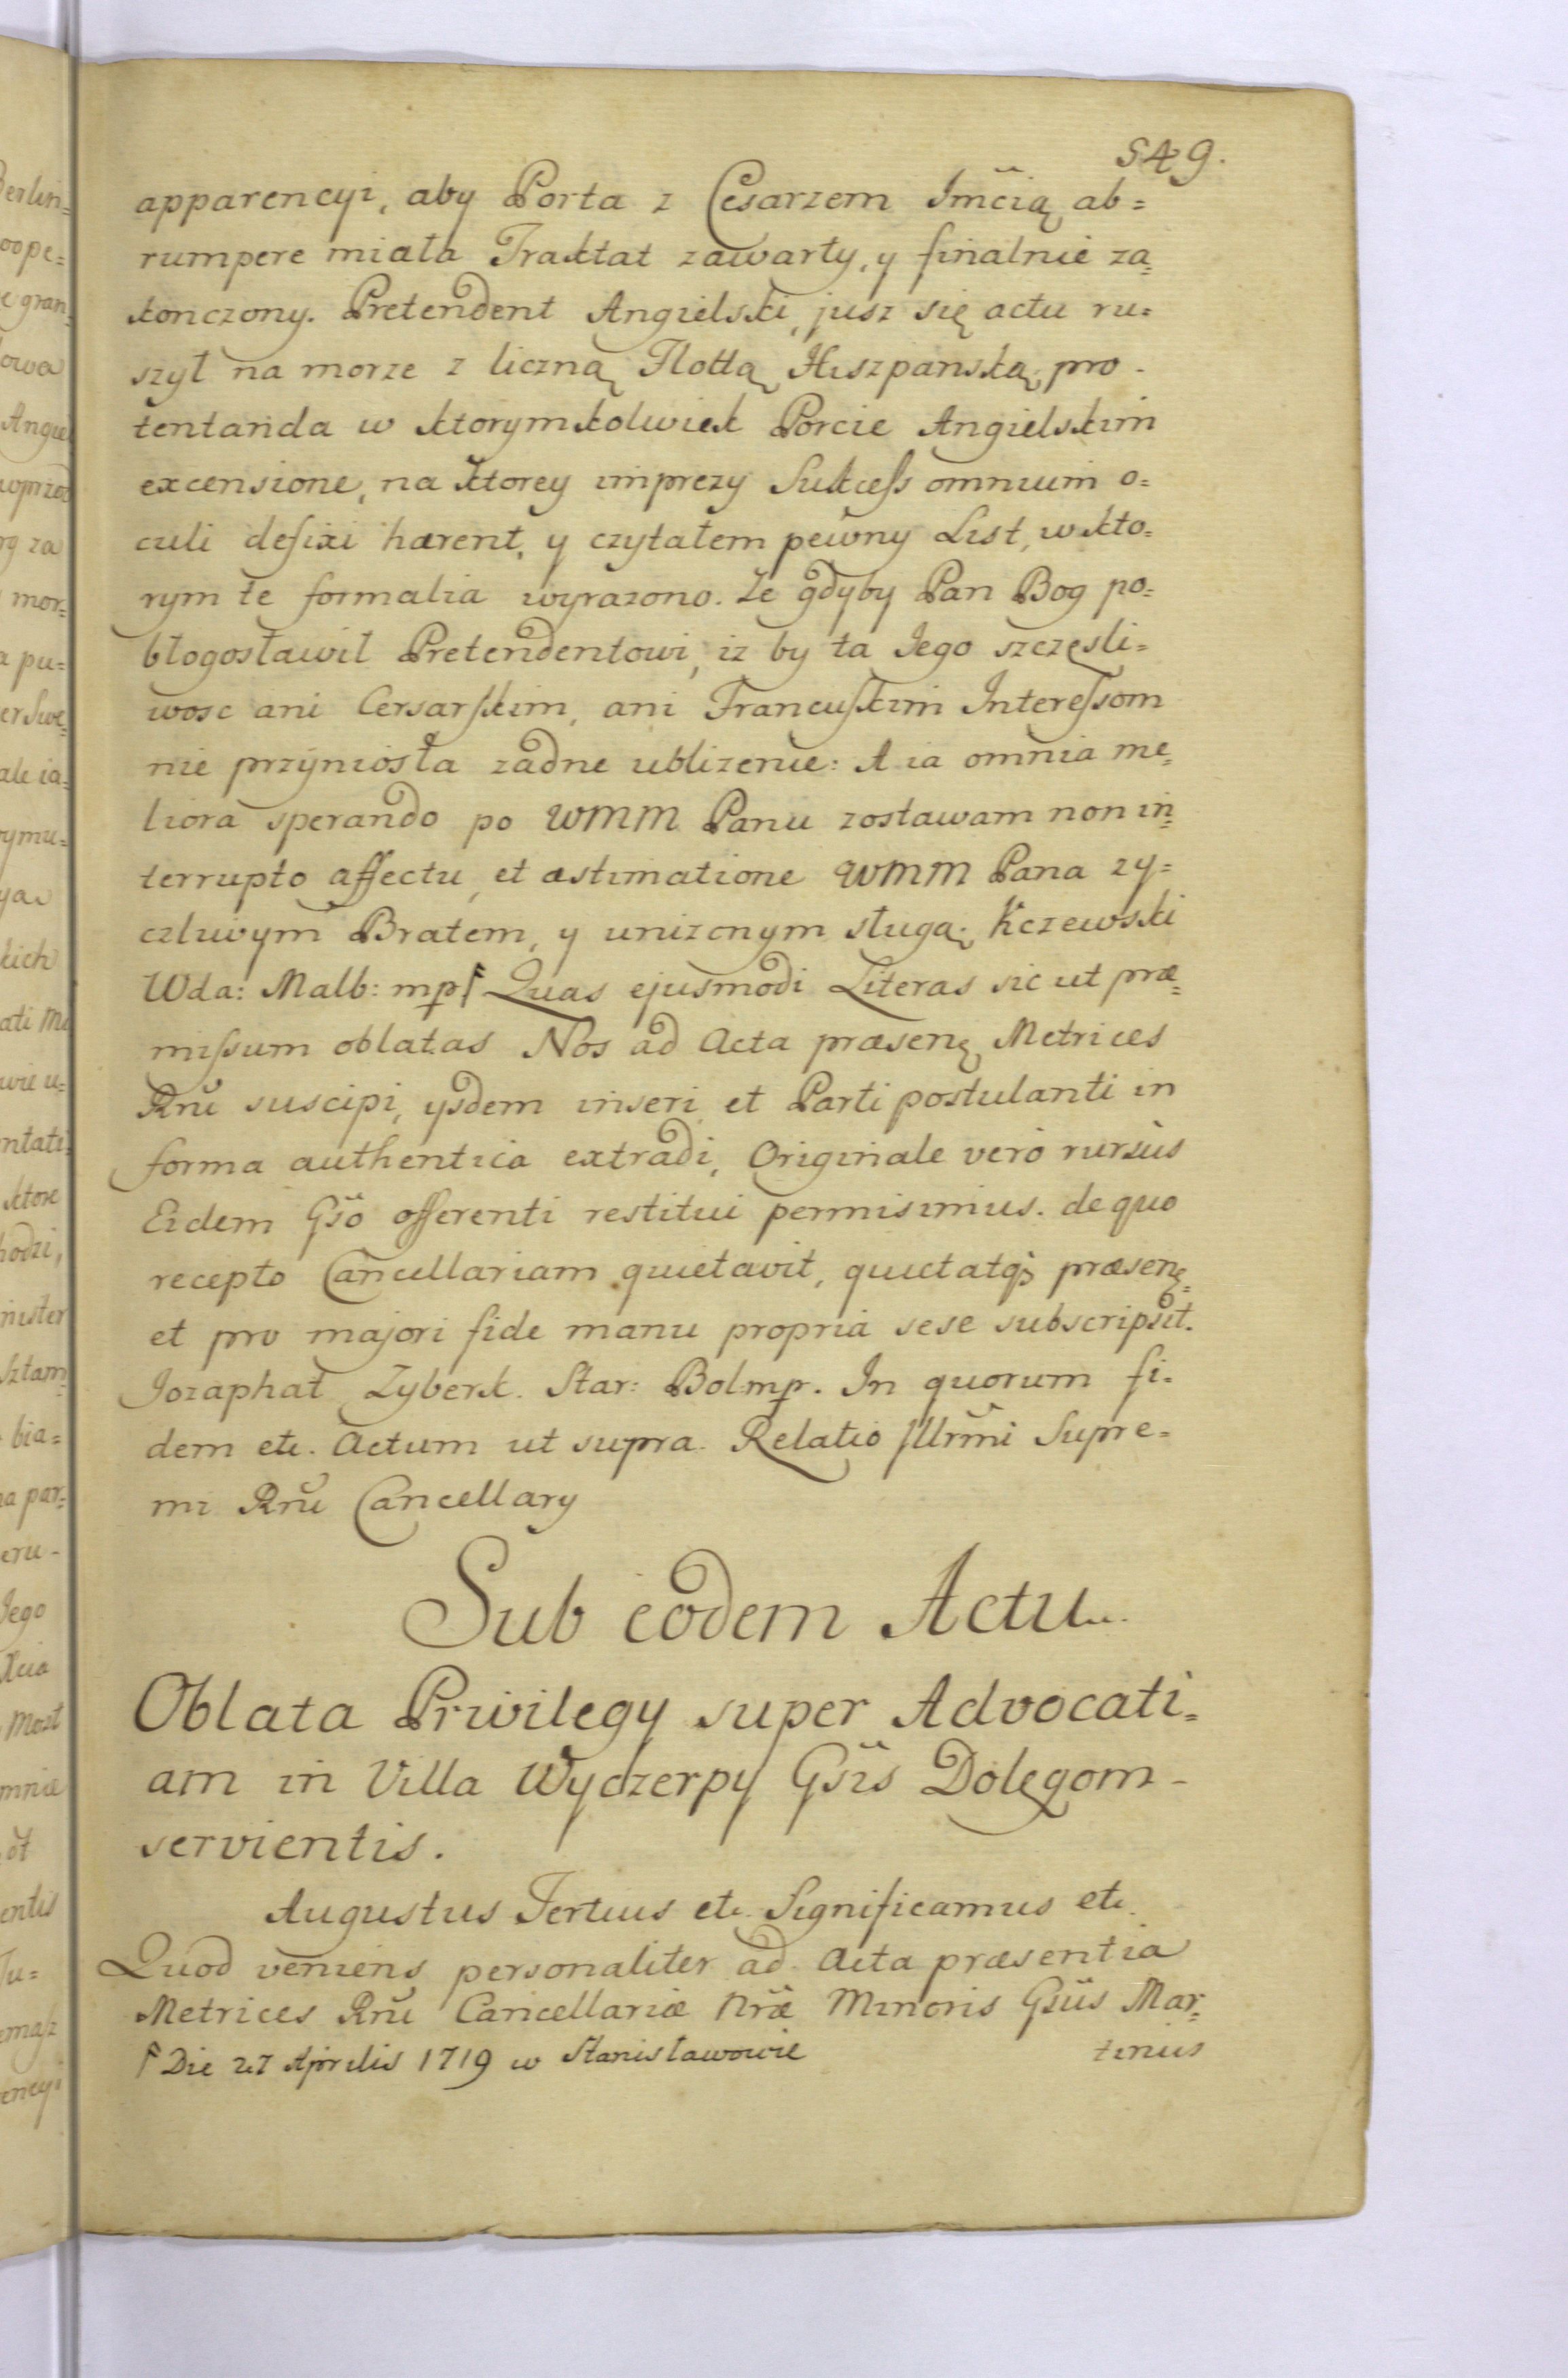 549.
apparencyi, aby Porta z Cesarzem Jmcią ab=
rumpere miała Traktat zawarty, y finalnie za=
konczony. Pretendent Angielski, jusz się actu ru=
szył na morze z liczną Flottą Hiszpanską, pro
tentanda w ktorymkolwiek Porcie Angielskim
excensione, na ktorey imprezy Sukcess omnium o=
culi defixi hærent, y czytałem pewny List, w kto=
rym te formalia wyrazono. Ze gdyby Pan Bog po=
błogosławił Pretendentowi, iz by ta Jego szczęsli=
wosc ani Cersarskim, ani Francuskim Interessom
nie przyniosła zadne ublizenie: A ia omnia me=
liora sperando po WMM Panu zostawam non in=
terrupto affectu, et æstimatione WMM Pana zy=
czliwym Bratem, y unizonym sługą. Kczewski
Wda: Malb: mp Quas ejusmodi Literas sic ut præ=
missum oblatas Nos ad Acta præsenę Metrices
Rnĩ suscipi, ysdem inseri, et Parti postulanti in
forma authentica extradi, Originale vero rursus
Eidem Gso offerenti restitui permisimus. de quo
recepto Cancellariam quietavit, quietatqꝫ præsenę
et pro majori fide manu propria sese subscripsit.
Jozaphat Zyberk. Star: Bol: mp. In quorum fi=
dem etc. Actum ut supra. Relatio Illrmi Supre=
mi Rnĩ Cancellary
Sub eodem Actu
Oblata Privilegy super Advocati=
am in Villa Wyczerpy Gsis Dolęgom
servientis.
Augustus Tertius etc. Significamus etc.
Quod veniens personaliter ad Acta præsentia
Metrices Rnĩ Cancellariæ Nræ Minoris Gsus Mar=
Die 27 Aprilis 1719 w Stanisławowie
tinus